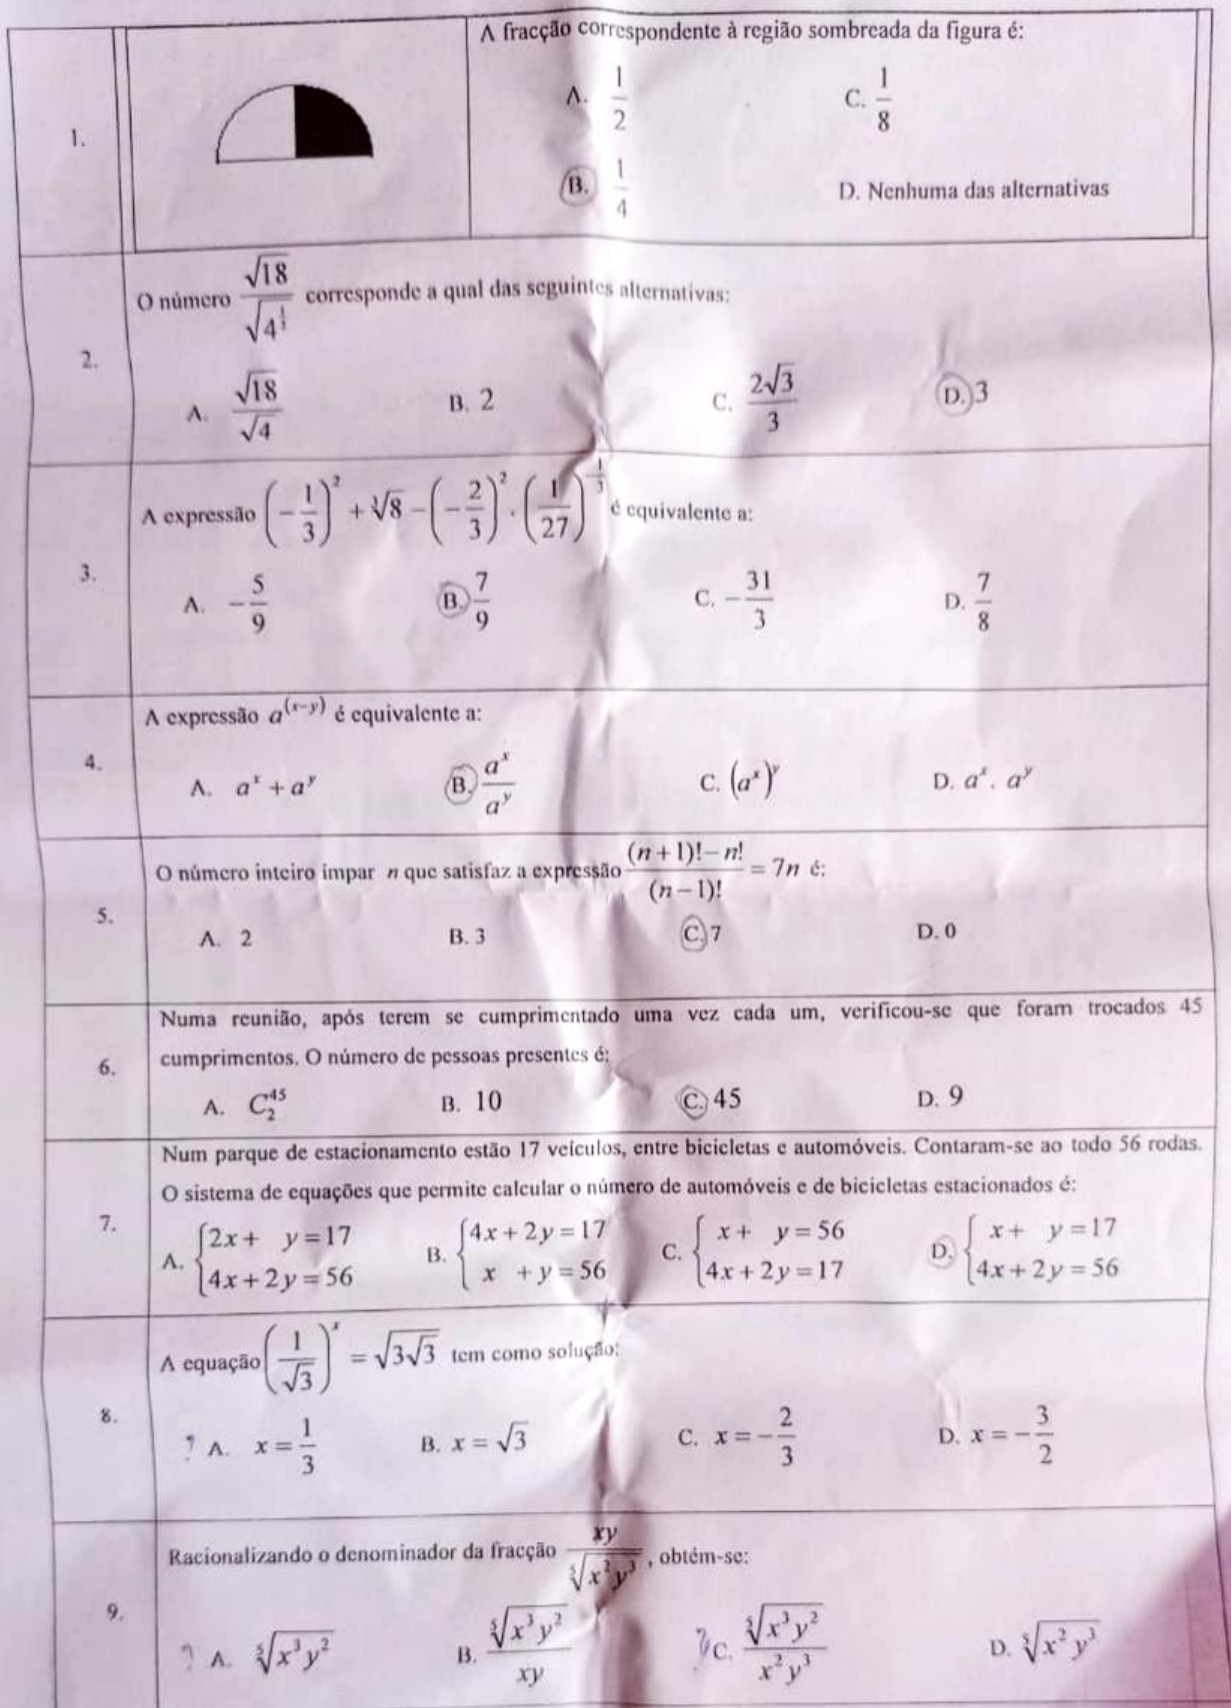 1.
A fracção correspondente à região sombreada da figura é:
A. 1/2 C. 1/8
B. 1/4 D. Nenhuma das alternativas
2.
O número √18/√(4^(1/2)) corresponde a qual das seguintes alternativas:
A. √18/√4 B. 2 C. 2√3/3 D. 3
3.
A expressão (-1/3)² + ³√8 - (-2/3)² . (1/27)^(-1/3) é equivalente a:
A. -5/9 B. 7/9 C. -31/3 D. 7/8
4.
A expressão a^(x-y) é equivalente a:
A. a^x + a^y B. a^x/a^y C. (a^x)^y D. a^x . a^y
5.
O número inteiro ímpar n que satisfaz a expressão ((n+1)!-n!)/(n-1)! = 7n é:
A. 2 B. 3 C. 7 D. 0
6.
Numa reunião, após terem se cumprimentado uma vez cada um, verificou-se que foram trocados 45
cumprimentos. O número de pessoas presentes é:
A. C₂⁴⁵ B. 10 C. 45 D. 9
7.
Num parque de estacionamento estão 17 veículos, entre bicicletas e automóveis. Contaram-se ao todo 56 rodas.
O sistema de equações que permite calcular o número de automóveis e de bicicletas estacionados é:
A. {2x + y = 17 B. {4x + 2y = 17 C. {x + y = 56 D. {x + y = 17
4x + 2y = 56 x + y = 56 4x + 2y = 17 4x + 2y = 56
8.
A equação (1/√3)^x = √(3√3) tem como solução:
? A. x = 1/3 B. x = √3 C. x = -2/3 D. x = -3/2
9.
Racionalizando o denominador da fracção xy/⁵√(x²y³), obtém-se:
? A. ⁵√(x³y²) B. ⁵√(x³y²)/xy ? C. ⁵√(x³y²)/x²y³ D. ⁵√(x²y³)